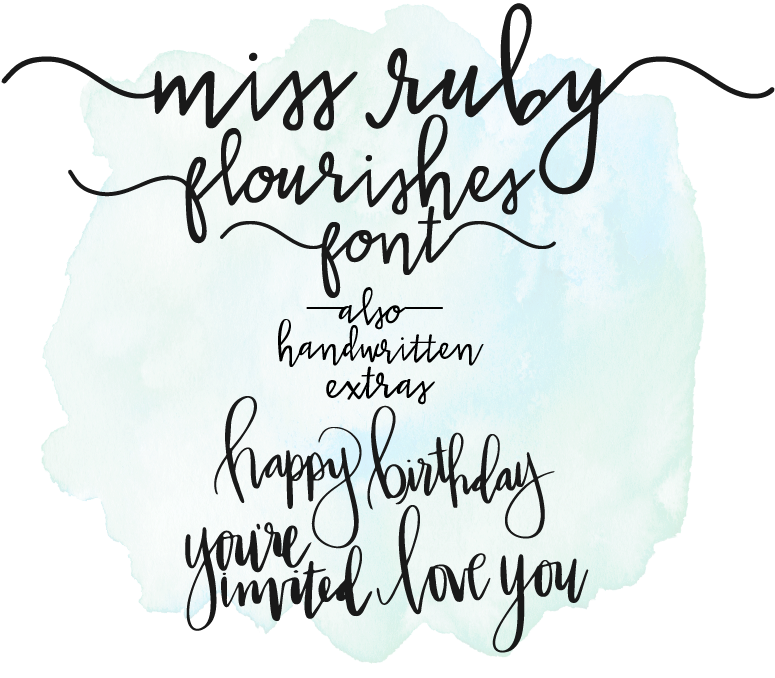 miss ruby
flourishes
font
also
handwritten
extras
happy birthday
you're
invited love you